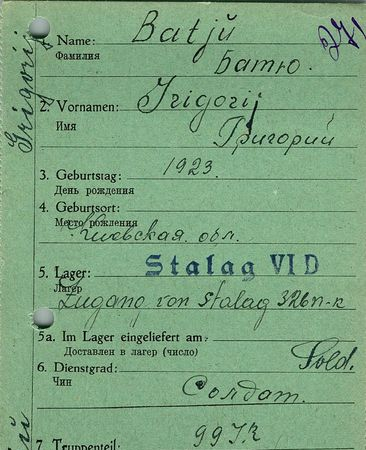 271
Grigorij
1. Name: Batjü
Фамилия Батю.
2. Vornamen: Grigorij
Имя Григорий
3. Geburtstag: 1923.
День рождения
4. Geburtsort:
Место рождения
Киевская обл.
5. Lager: Stalag VI D
Лагер
Zugang von Stalag 326
5a. Im Lager eingeliefert am
Доставлен в лагер (число)
Sold.
6. Dienstgrad:
Чин Солдат.
7. Truppenteil: